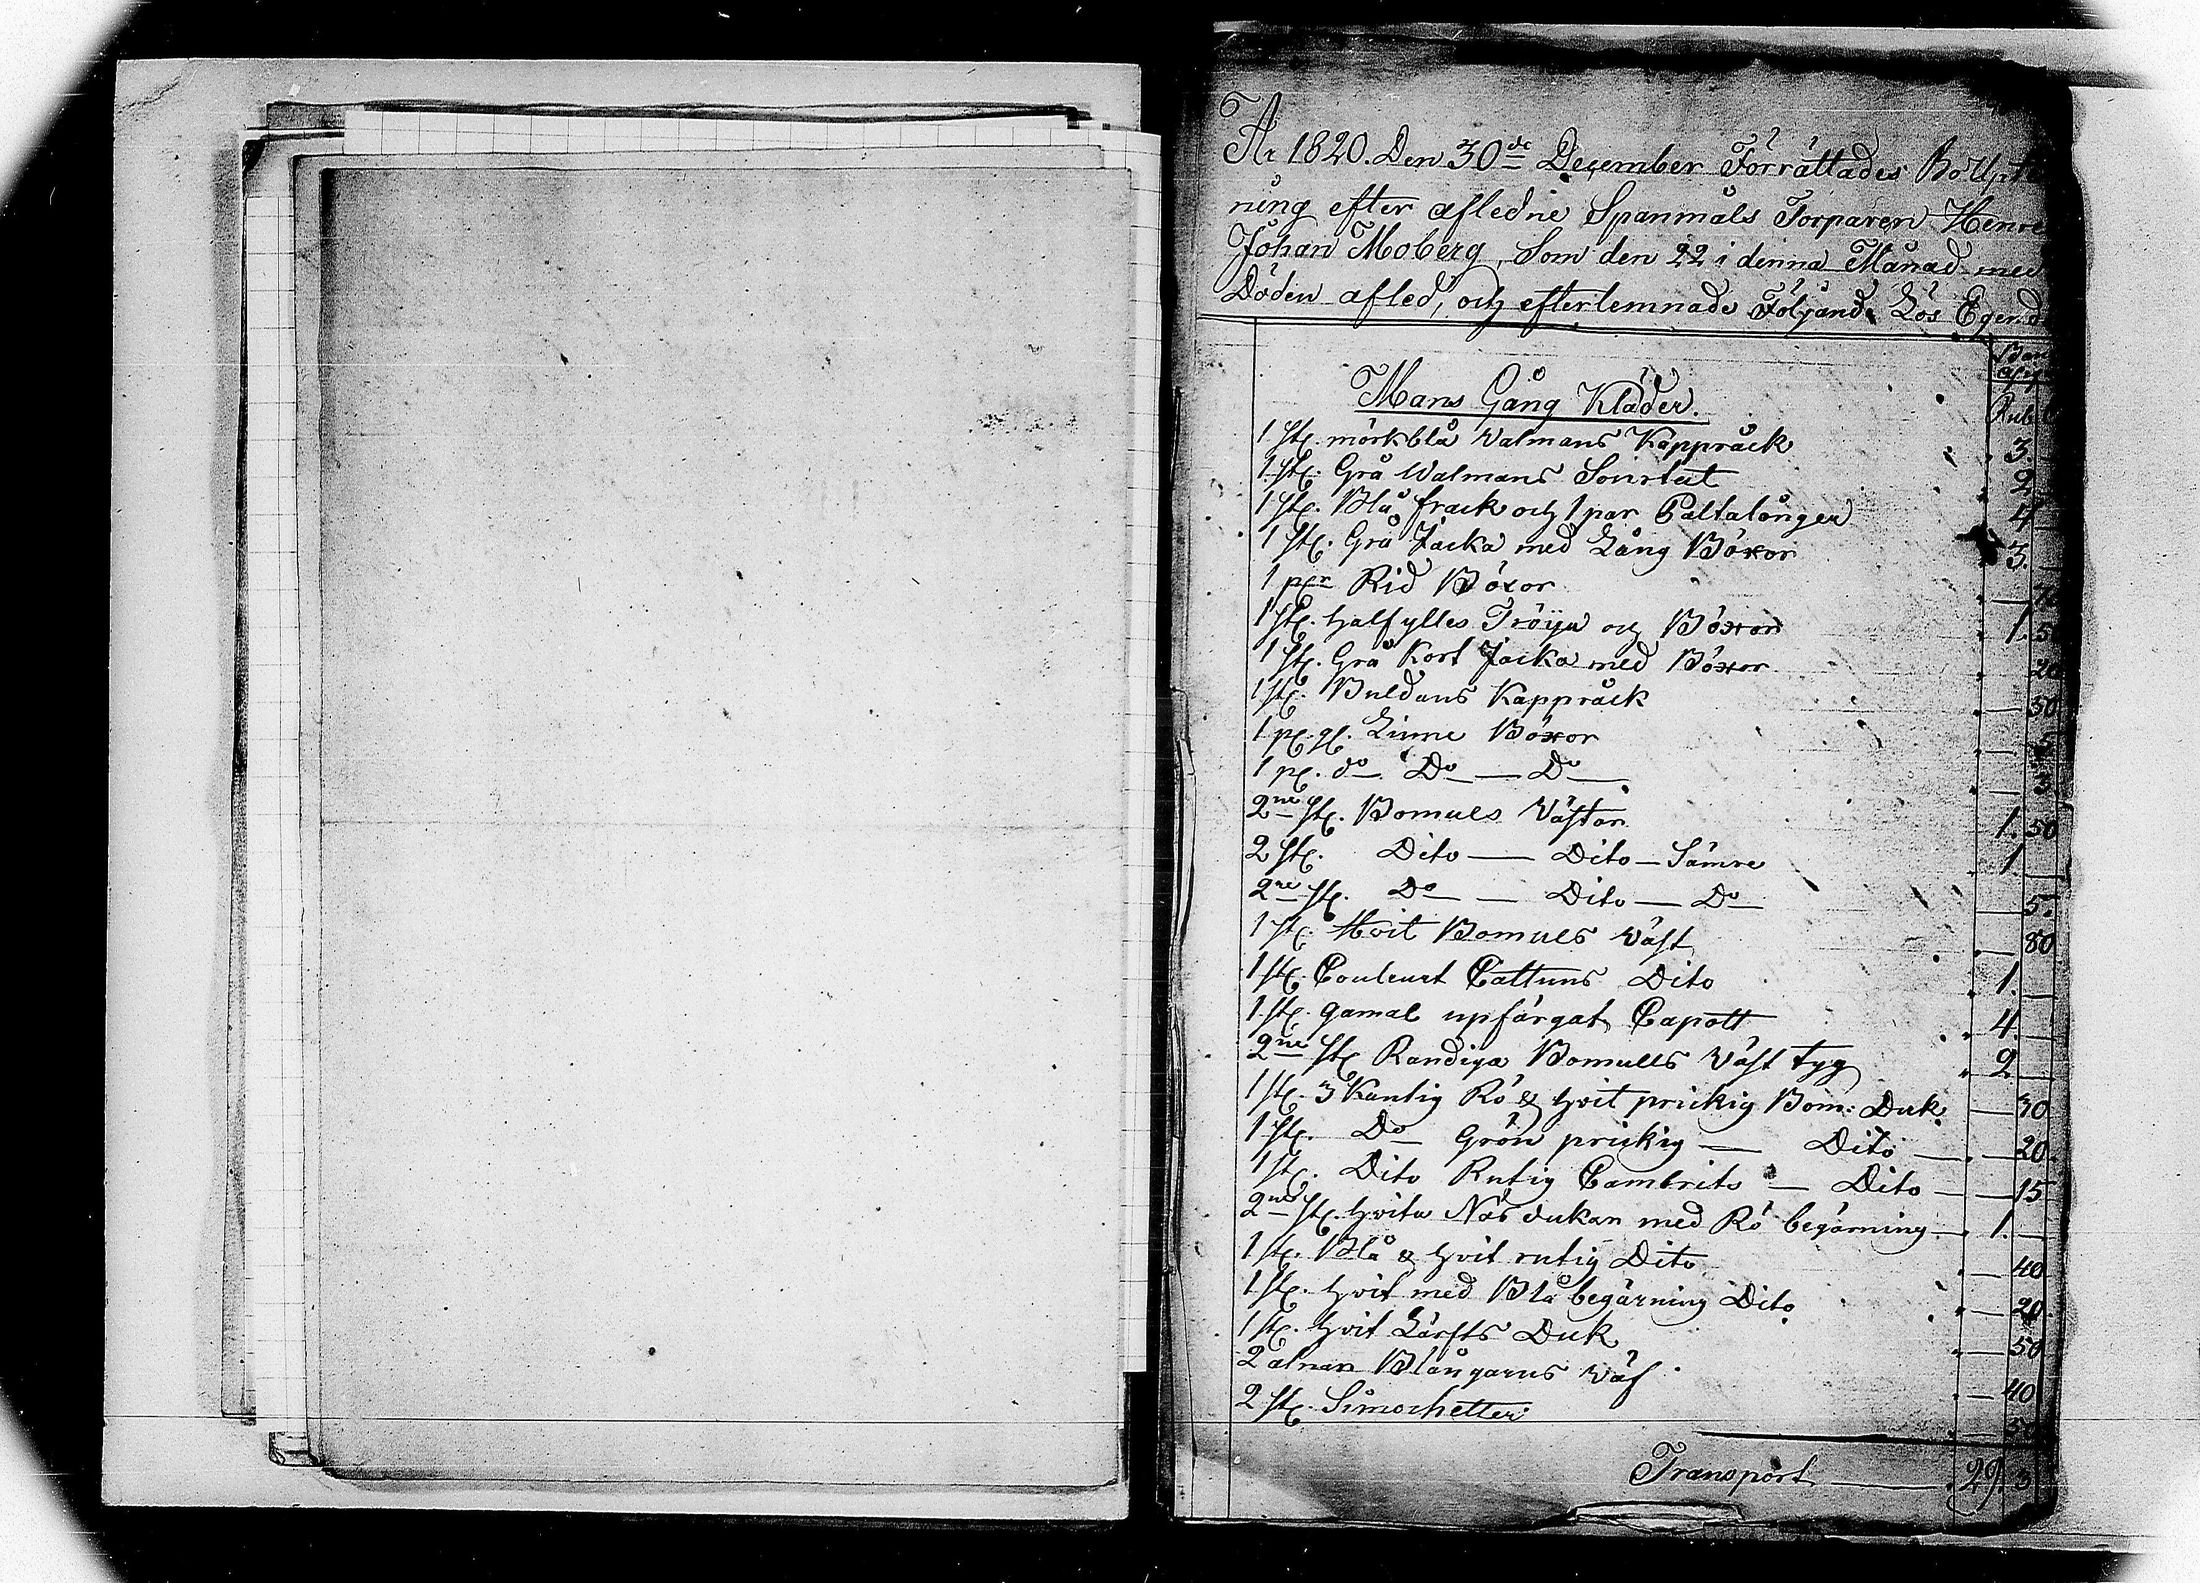 År 1820. Den 30de December Förrättades Bo Upte
ning efter afledne Spanmåls Torparen Henre
Johan Moberg, Som den 22 i denna Månad med
Döden afled, och efterlemnade Följande Lös Egend
Rub
Mans Gång Kläder.
1 st. mörkblå Valmans Kappråck 3.
1 st. Grå Walmans Sourtut 2
1 st. Blå frack och 1 par Paltalonger 4
1 st. Grå Jacka med Lång Böxor 3.
1 par Rid Böxor
1 st. halfylles Tröija och Böxor 1. 5
1 st. Grå Kort Jacka med Böxor 20
1 st. Buldans Kappråck 50
1 p. gl. Linne Böxor 5
1 p. do Do — Do 3
2ne st. Bomuls Västar 1. 50
2 st. Dito — Dito — Sämre 1
2ne st. Do — Dito — Do 5.
1 st. Hvit Bomuls Väst 80
1 st. Couleurt Cattuns Dito 1.
1 st. gamal upfärgat Capott 4.
2ne st. Randiga Bomulls Väst tyg 2
1 st. 3 Kantig Rö & hvit prickig Bom: Duk 30
1 st. Do Grön prickig — Dito 20
1 st. Dito Rutig Cambrits — Dito 15
2ne st. hvita Näsdukar med Rö begärning 1.
1 st. Blå & hvit rutig Dito 40
1 st. hvit med Blå begärning Dito 20
1 st. hvit Lärfts Duk 50
2 alnar Blångarns Väf 40
2 st. Simochetter 50
Transport 29. 3